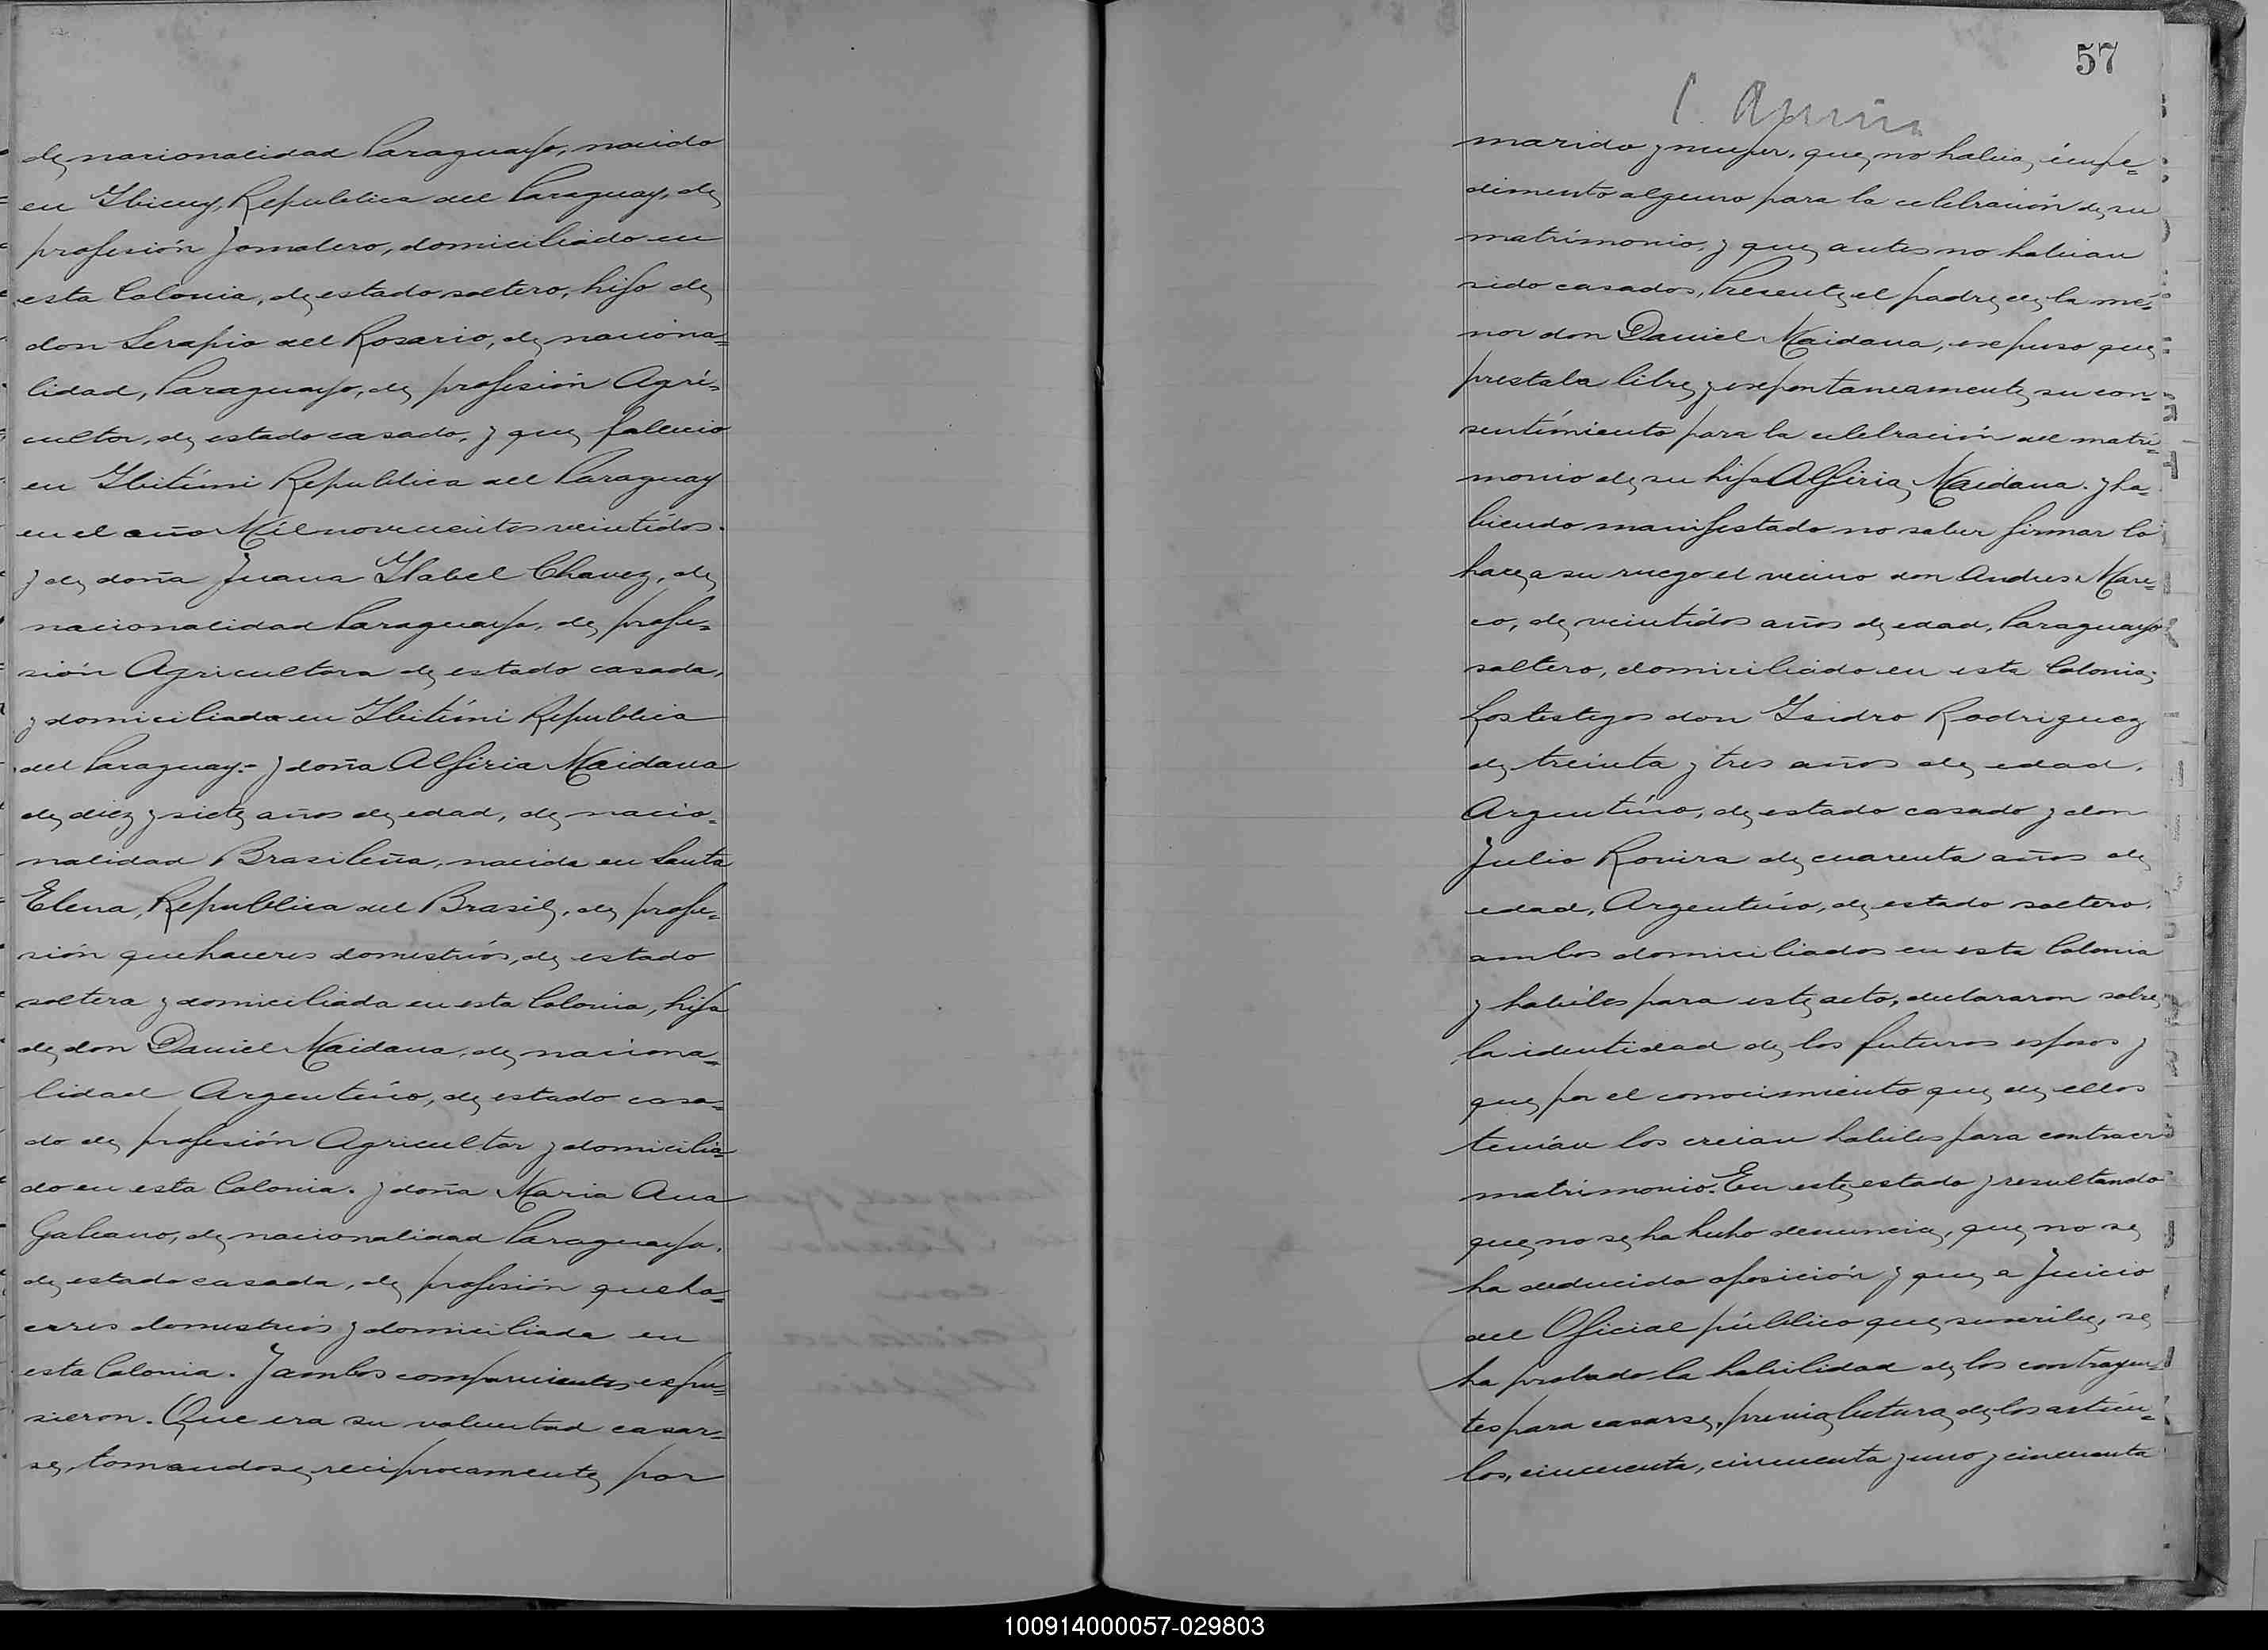 de nacionalidad Paraguayo, nacido
en Ibicuy, Republica del Paraguay, de
profesión Jornalero, domiciliado en
esta Colonia, de estado soltero, hijo de
don Serapio del Rosario, de naciona=
lidad, Paraguayo, de profesión Agri=
cultor, de estado casado, y que falleció
en Ibitimi Republica del Paraguay
en el año Mil novecientos veintidos.
y de doña Juana Isabel Chavez, de
nacionalidad Paraguaya, de profe=
sión Agricultora de estado casada,
y domiciliada en Ibitimi Republica
del Paraguay.= y doña Alfiria Maidana
de diez y siete años de edad, de nacio=
nalidad Brasileña, nacida en Santa
Elena, Republica del Brasil, de profe=
sión quehaceres domesticos, de estado
soltera y domiciliada en esta Colonia, hija
de don Daniel Maidana, de naciona=
lidad Argentino, de estado casa=
do de profesión Agricultor y domicilia=
do en esta Colonia. y doña Maria Ana
Galeano, de nacionalidad Paraguaya,
de estado casada, de profesión queha=
ceres domesticos y domiciliada en
esta Colonia. Y ambos comparecientes expu=
sieron. Que era su voluntad casar=
se, tomandose reciprocamente por
57
marido y mujer, que no habia impe=
dimento alguno para la celebración de su
matrimonio, y que antes no habian
sido casados, Presente el padre de la me=
nor don Daniel Maidana, expuso que
prestaba libre y expontaneamente su con=
sentimiento para la celebración del matri=
monio de su hija Alfiria Maidana. y ha=
biendo manifestado no saber firmar lo
hace a su ruego el vecino don Andres Mare=
co, de veintidós años de edad, Paraguayo
soltero, domiciliado en esta Colonia;
Los testigos don Isidro Rodriguez
de treinta y tres años de edad,
Argentino, de estado casado y don
Julio Rovira de cuarenta años de
edad, Argentino, de estado soltero.
ambos domiciliados en esta Colonia
y habiles para este acto, declararon sobre
la identidad de los futuros esposos y
que por el conocimiento que de ellos
tenían los creian habiles para contraer
matrimonio. En este estado y resultando
que no se ha hecho denuncia, que no se
ha deducido oposición y que a Juicio
del Oficial público que suscribe, se
ha probado la habilidad de los contrayen=
tes para casarse, previa lectura de los articu=
los, cincuenta, cincuenta y uno y cincuenta
100914000057-029803